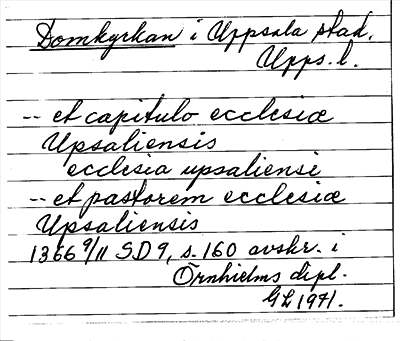 Domkyrkan i Uppsala stad,
Upps. l.
-- et capitulo ecclesiæ
Upsaliensis
ecclesia upsaliensi
-- et pastorem ecclesiæ
Upsaliensis
1366 9/11 SD 9, s. 160 avskr. i
Örnhielms dipl.
GL 1971.